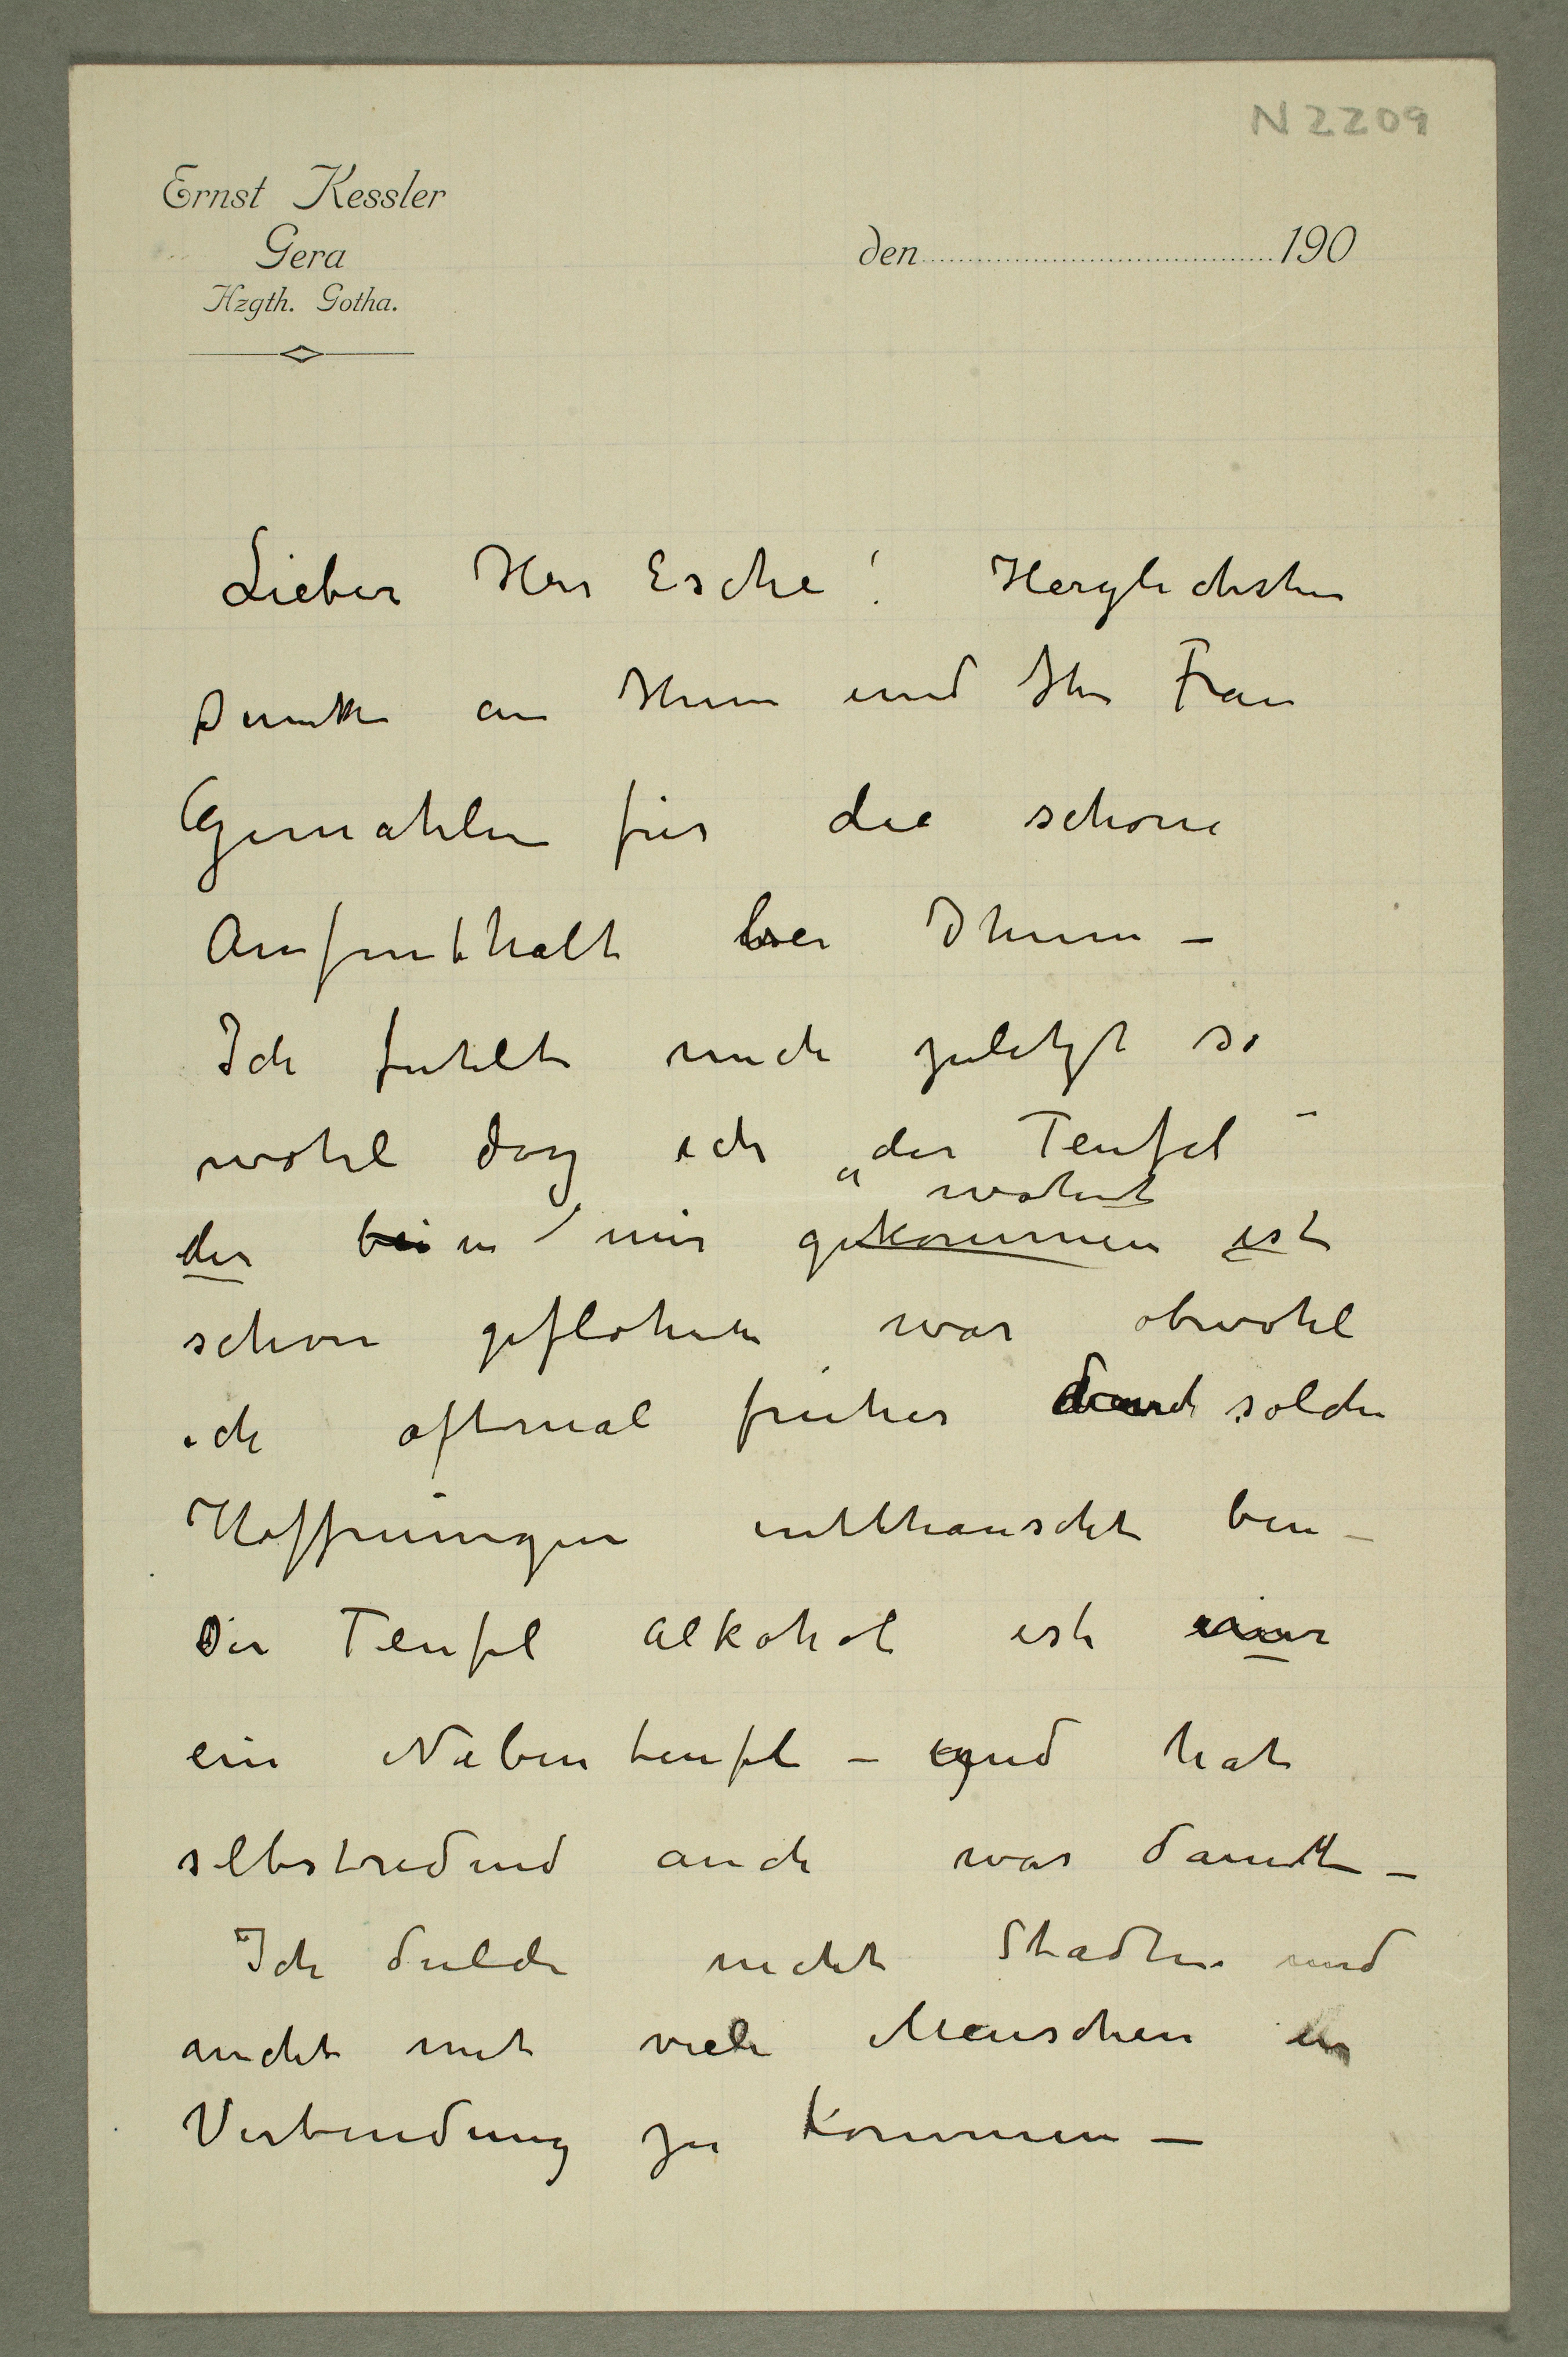 N 2209
Ernst Kessler
Gera
Hzgth. Gotha.
den 190
Lieber Herr Esche! Herzlichsten
Dank an Ihnen und Ihr Frau
Gemahlin für die schöne
Aufenthalt bei Ihnen –
Ich fühlte mich zuletzt so
wohl dag ich „der Teufel"
wohnt
der in mir gekommen ist
schon geflohen war obwohl
ich oftmal früher durch solche
Hoffnungen entthäuscht bin –
Der Teufel Alkohol ist nur
ein Nebenteufel – und hat
selbstredend auch was damit –
Ich dulde nicht Städte und
nicht mit viele Menschen in
Verbindung zu kommen –